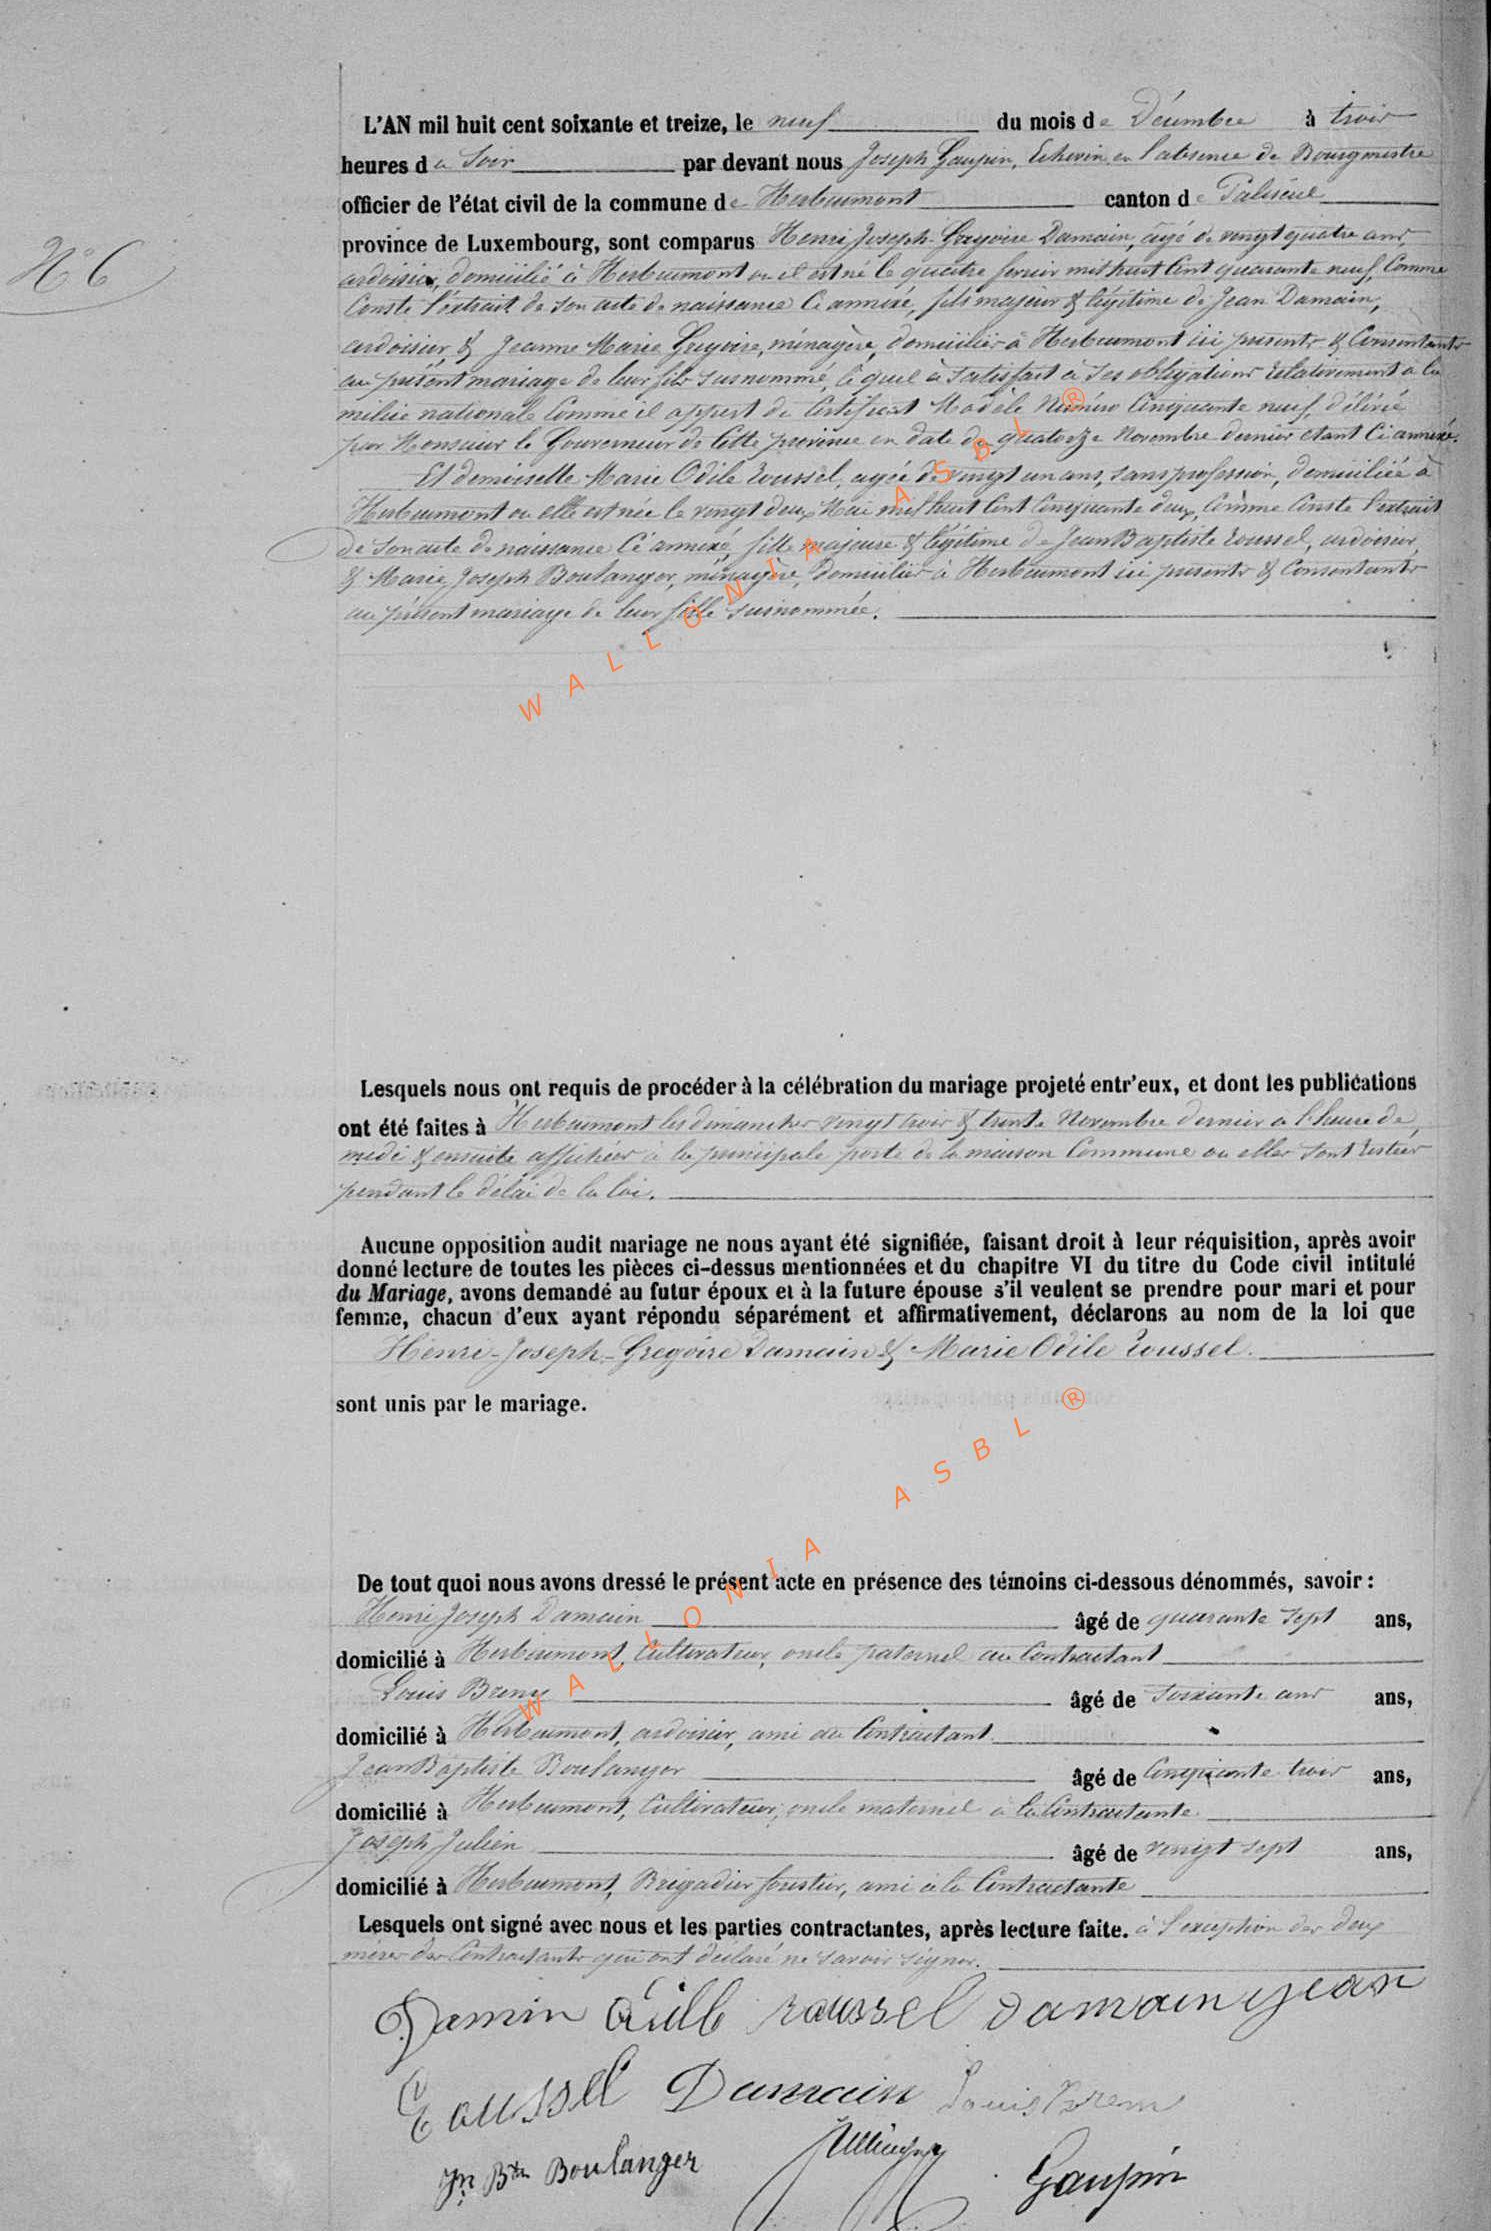 L'AN mil huit cent soixante et treize, le neuf du mois de Décembre à trois
heures du Soir par devant nous Joseph Gaupin, Echevin en l'absence de Bourgmestre
officier de l'état civil de la commune de Herbeumont canton de Paliseul
N° 6
province de Luxembourg, sont comparus Henri Joseph-Grégoire Damain, âgé de vingt quatre ans,
ardoisier, domicilié à Herbeumont ou il est né le quatre fevrier mil huit Cent quarante neuf, Comme
Conste l'extrait de son acte de naissance Ci annexé, fils majeur & légitime de Jean Damain,
ardoisier & Jeanne Marie Grégoire, ménagère, domiciliés à Herbeumont ici présents & Consentants
au présent mariage de leur fils susnommé, lequel à satisfait à ses obligations relativement à la
milice nationale Comme il appert du Certificat Modèle Numéro Cinquante neuf, délivré
par Monsieur le Gouverneur de Cette province en date du quatorze Novembre dernier etant Ci annexé.
Et demoiselle Marie Odile Roussel, agée de vingt un ans, sans profession, domiciliée à
Herbeumont ou elle est née le vingt deux Mai mil huit Cent Cinquante deux, Comme Conste l'extrait
de son acte de naissance Ci annexé, fille majeure & légitime de Jean Baptiste Roussel, ardoisier,
& Marie Joseph Boulanger, ménagère, domiciliés à Herbeumont ici présents & Consentants
au présent mariage de leur fille susnommée.
Lesquels nous ont requis de procéder à la célébration du mariage projeté entr'eux, et dont les publications
ont été faites à Herbeumont les dimanches vingt trois & trente Novembre dernier a l'heure de
midi & ensuite affichées à la principale porte de la maison Commune ou elles sont restées
pendant le délai de la loi.
Aucune opposition audit mariage ne nous ayant été signifiée, faisant droit à leur réquisition, après avoir
donné lecture de toutes les pièces ci-dessus mentionnées et du chapitre VI du titre du Code civil intitulé
du Mariage, avons demandé au futur époux et à la future épouse s'il veulent se prendre pour mari et pour
femme, chacun d'eux ayant répondu séparément et affirmativement, déclarons au nom de la loi que
Henri-Joseph-Grégoire Damain & Marie Odile Roussel.
sont unis par le mariage.
De tout quoi nous avons dressé le présent acte en présence des témoins ci-dessous dénommés, savoir :
Henri Joseph Damain âgé de quarante sept ans,
domicilié à Herbeumont, Cultivateur, oncle paternel au Contractant
Louis Breny âgé de soixante ans ans,
domicilié à Herbeumont, ardoisier, ami du Contractant
Jean Baptiste Boulanger âgé de Cinquante trois ans,
domicilié à Herbeumont, Cultivateur, oncle maternel à la Contractante
Joseph Julien âgé de vingt sept ans,
domicilié à Herbeumont, Brigadier forestier, ami à la Contractante
Lesquels ont signé avec nous et les parties contractantes, après lecture faite. à l'exception des deux
mères des Contractants qui ont déclaré ne savoir signer.
Damin Odille roussel damain jean
Roussel Damain Louis Brem
Jn Bte Boulanger Gaupin
WALLONIA ASBL ®
WALLONIA ASBL ®